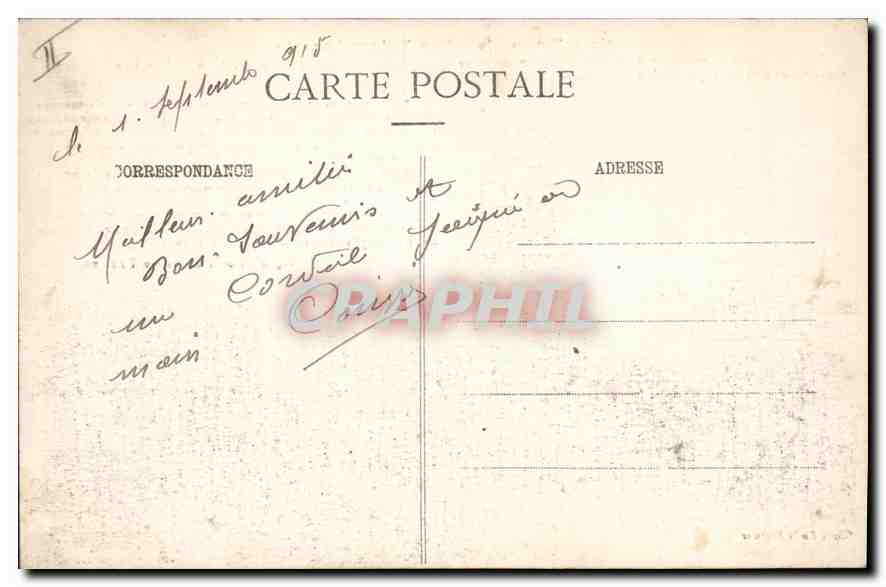 II
le 1. Septembre 915
CARTE POSTALE
CORRESPONDANCE
ADRESSE
Meilleur amitié
Bon Souvenirs et
un Cordial
main
CPAPHIL